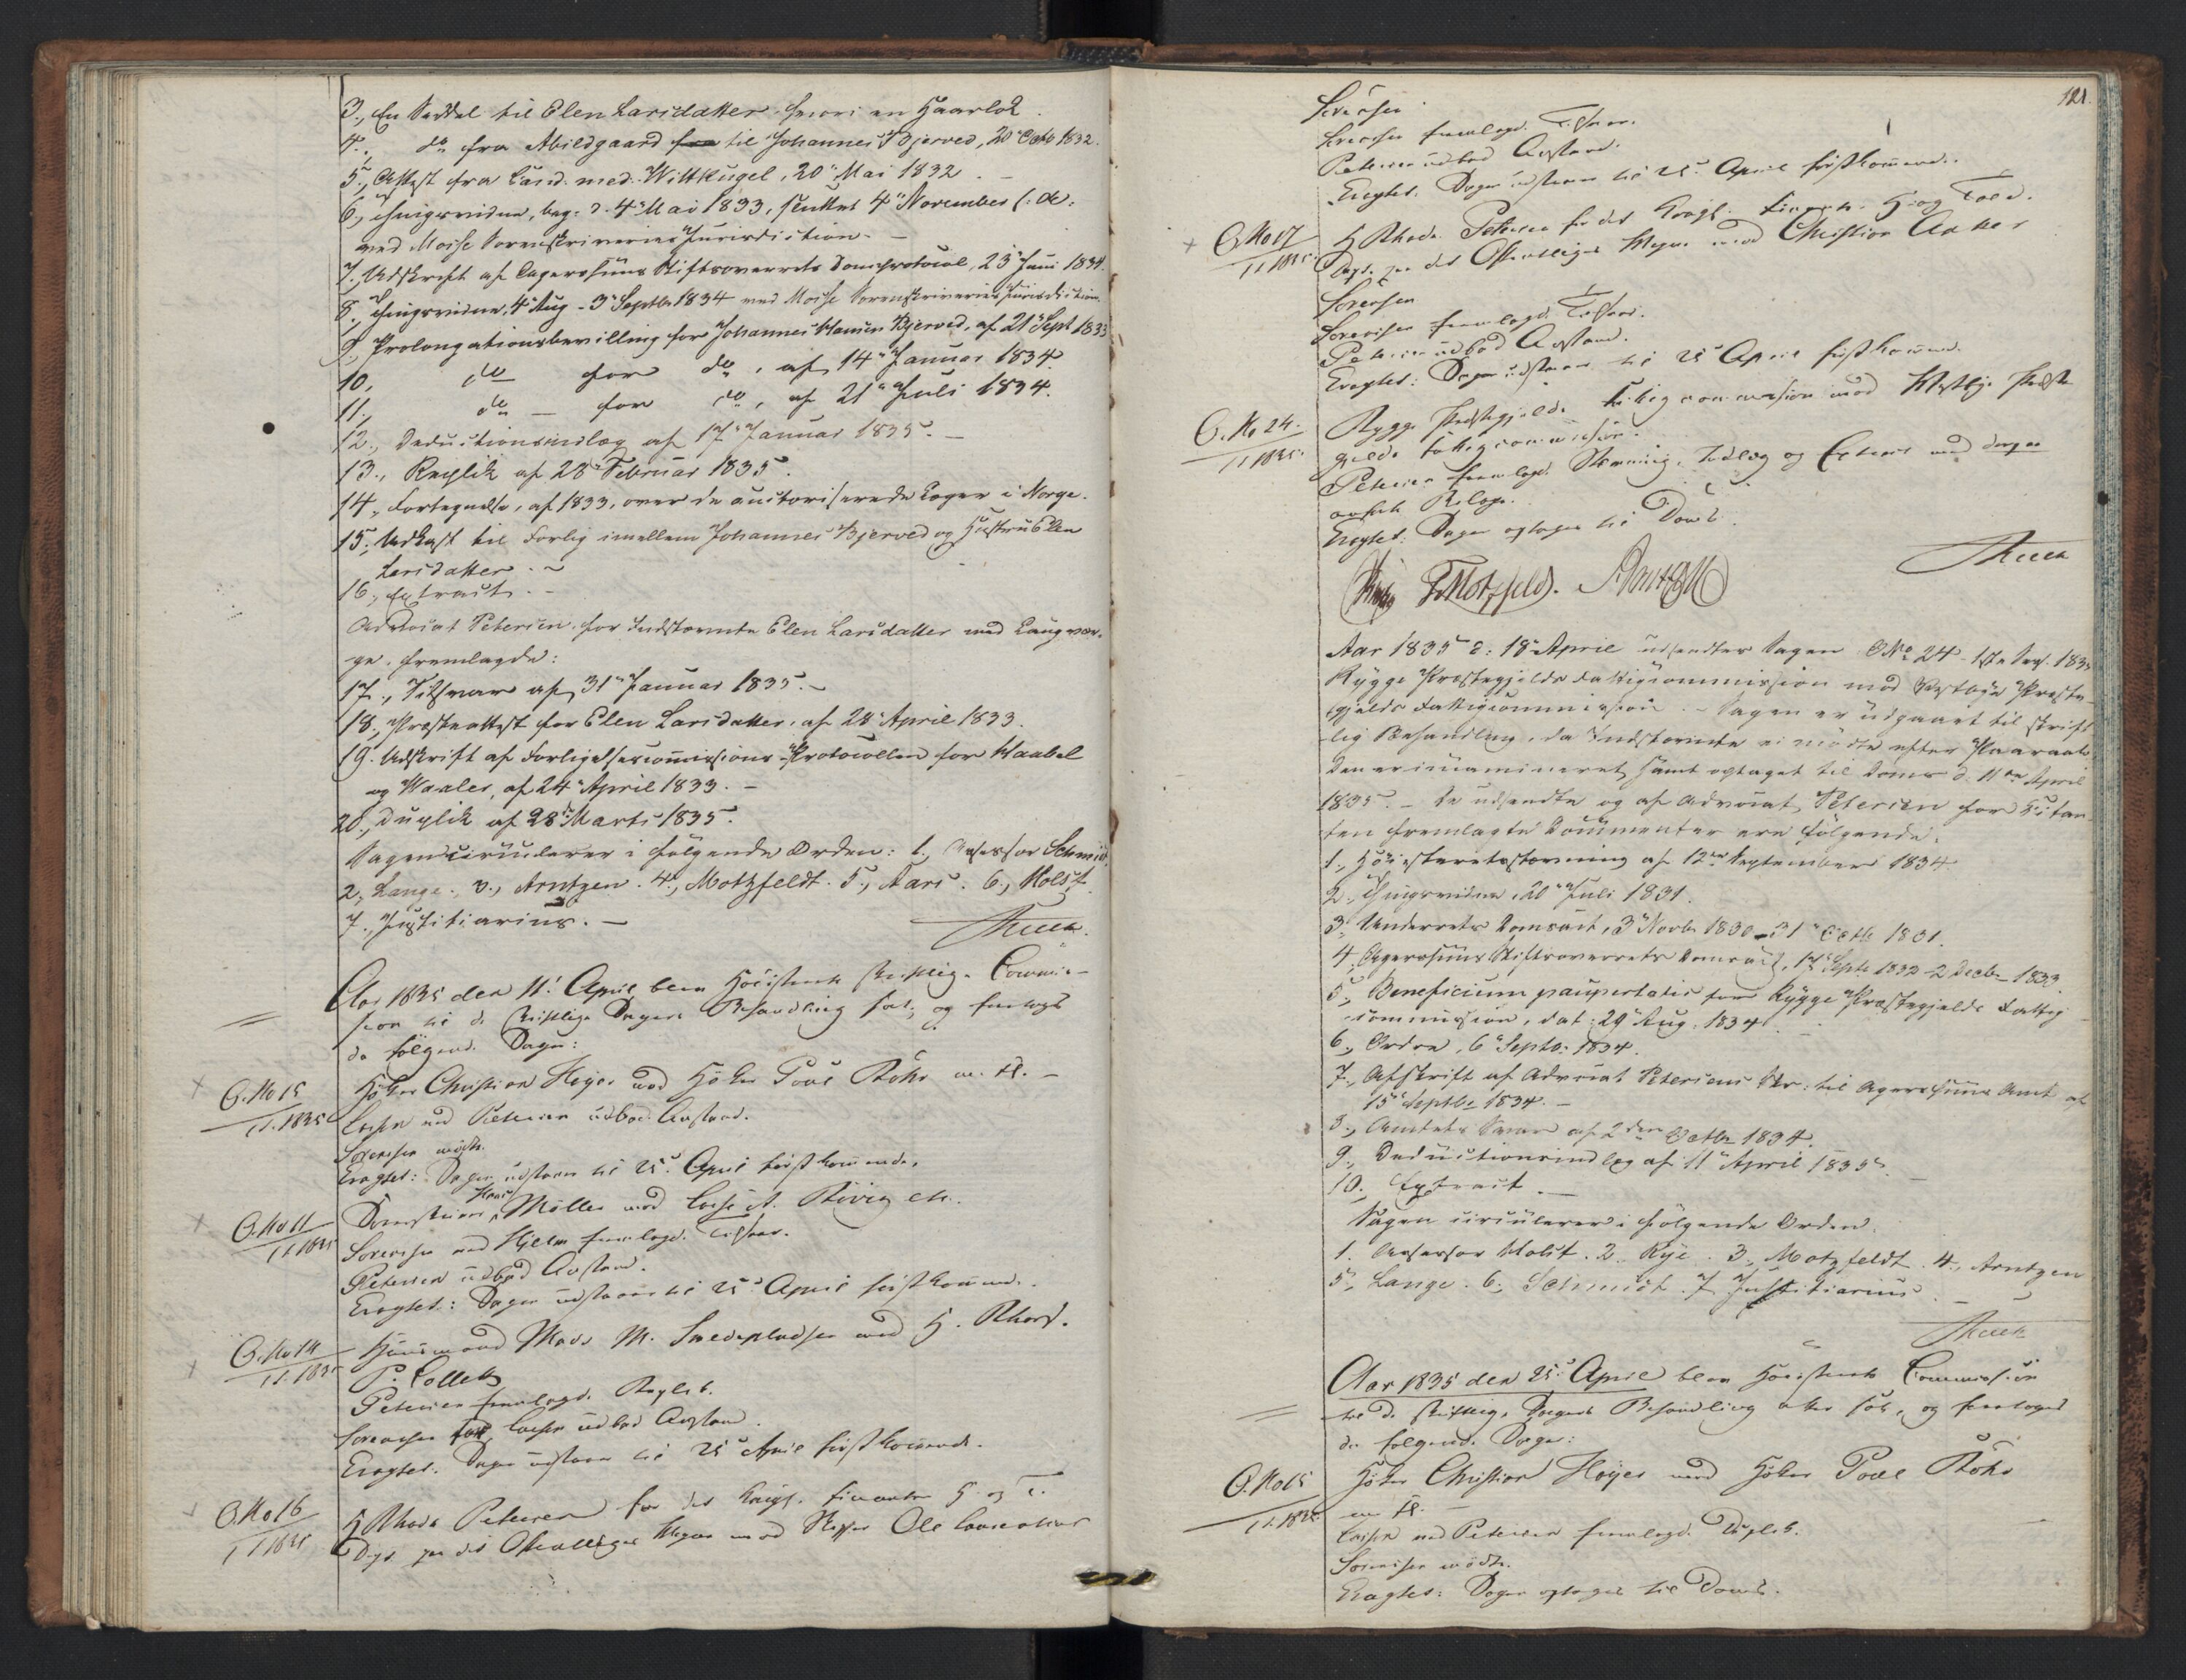 3., En Seddel til Elen Larsdatter, hvori en Haarlok
4., do fra Abildgaard til Johannes Bjerved, 20 Octbr 1832.
5., Attest fra Cand. med. Wittkugel, 20 Mai 1832. –
6., Thingsvidne, beg. d. 4 Mai 1833, sluttet 4 November s. A.
ved Mosse Sorenskriveries Jurisdiction. –
7., Udskrift af Aggershuus Stiftsoverrets Domsprotocol, 23 Juni 1834.
8., Thingsvidne, 4 Aug – 3 Septbr 1834 ved Mosse Sorenskriveries Jurisdiction.
9., Prolongationsbevilling for Johannes Hansen Bjerved, af 21 Sept 1833
10., do for do, af 14 Januar 1834.
11., do – for do, af 21 Juli 1834.
12., Deductionsindlæg af 17 Januar 1835. –
13., Replik af 28 Februar 1835.
14., Fortegnelse, af 1833, over de auctoriserede Læger i Norge.
15., Udkast til Forlig imellem Johannes Bjerved og Hustru Elen
Larsdatter. –
16., Extract. –
Advocat Petersen for Indstevnte Elen Larsdatter med Laugvær-
ge, fremlagde:
17., Tilsvar af 31 Januar 1835. –
18., Præsteattest for Elen Larsdatter, af 28 April 1833.
19. Udskrift af Forligelsescommissions-Protocollen for Haabøl
og Waaler, af 24 April 1833. –
20., Duplik af 28 Marts 1835.
Sagen circulerer i følgende Orden: 1., Assessor Schmidt
2., Lange. 3., Arntzen. 4., Motzfeldt. 5., Aars. 6., Holst.
7., Justitiarius. –
Aar 1835 den 11 April blev Høiesterets skriftlige Commis-
sion til de skriftlige Sagers Behandling sat, og foretoges
de følgende Sager:
O. No 15
1 S. 1835
Høker Christian Heyer mod Høker Poul Röhr m. fl. –
med Petersen udbad Anstand.
Sørensen mødte.
Eragtet: Sagen udstaaer til 25 April førstkommende.
O. No 11
1 S. 1835
Sorenskriver Hans Møller mod
Sørensen med Hjelm fremlagde Tilsvar.
Petersen udbad Anstand.
Eragtet: Sagen udstaaer til 25 April førstkommende.
O. No 14
1 S. 1835
Huusmand Mads M. Smedepladsen mod
P. Collett
Petersen fremlagde Replik.
Sørensen udbad Anstand.
Eragtet: Sagen udstaaer til 25 April førstkommende.
O. No 16
1 S 1835
Petersen for det Kongl. Finants H. og T.
Dept. paa det Offentliges Vegne mod Ole
121.
Sørensen
Sørensen fremlagde Tilsvar.
Petersen udbad Anstand.
Eragtet: Sagen udstaaer til 25 April førstkommende.
O. No 17
1 S 1835
Petersen for det Kongl. Finants H. og Told
Dept. paa det Offentliges Vegne mod Christian Anker
Sørensen
Sørensen fremlagde Tilsvar.
Petersen udbad Anstand.
Eragtet: Sagen udstaaer til 25 April førstkommende.
O. No 24.
1 S 1835
Rygge Præstegjelds Fattigcommission mod Vestbye Præste-
gjelds Fattigcommission.
Petersen fremlagde Stevning, Indlæg og Extract med deri
Bilage.
Eragtet: Sagen optages til Doms.
Motzfeldt. Arntzen
Aar 1835 d: 18 April udsendtes Sagen O No 24 1ste Ses. 1835
Rygge Præstegjelds Fattigcommission mod Vestbye Præste-
gjelds Fattigcommission. – Sagen er udgaaet til skrift-
lig Behandling, da Indstevnte ei mødte efter Paaraab.
Den er incamineret samt optaget til Doms d. 11te April
1835. – De udsendte og af Advocat Petersen for Citan-
ten fremlagte Documenter ere følgende:
1., Høiesteretsstevning af 12te September 1834.
2., Thingsvidne, 20 Juli 1831.
3., Underrets Domsact, 3 Novbr 1830 – 31 Octbr 1831.
4., Aggershuus Stiftsoverrets Domsact, 17 Septr 1832 – 2 Decbr 1833
5., Beneficium paupertatis for Rygge Præstegjelds Fattig-
commission, dat: 29 Aug. 1834. –
6., Ordre, 6 Septbr. 1834.
7., Afskrift af Advocat Petersens Skr. til Agershuus Amt af
15 Septbr 1834. –
8., Amtets Svar af 2den Octbr 1834.
9., Deductionsindlæg af 11 April 1835.
10., Extract. –
Sagen circulerer i følgende Orden:
1. Assessor Holst. 2. Rye. 3., Motzfeldt. 4., Arntzen
5., Lange. 6., Schmidt. 7. Justitiarius. –
Aar 1835 den 25 April blev Høiesterets Commission
til de skriftlige Sagers Behandling atter sat, og foretoges
de følgende Sager:
O. No 15
1 S. 1835
Høker Christian Høyer mod Høker Poul Röhr
m. fl. –
med Petersen fremlagde Duplik.
Sørensen mødte.
Eragtet: Sagen optages til Doms.